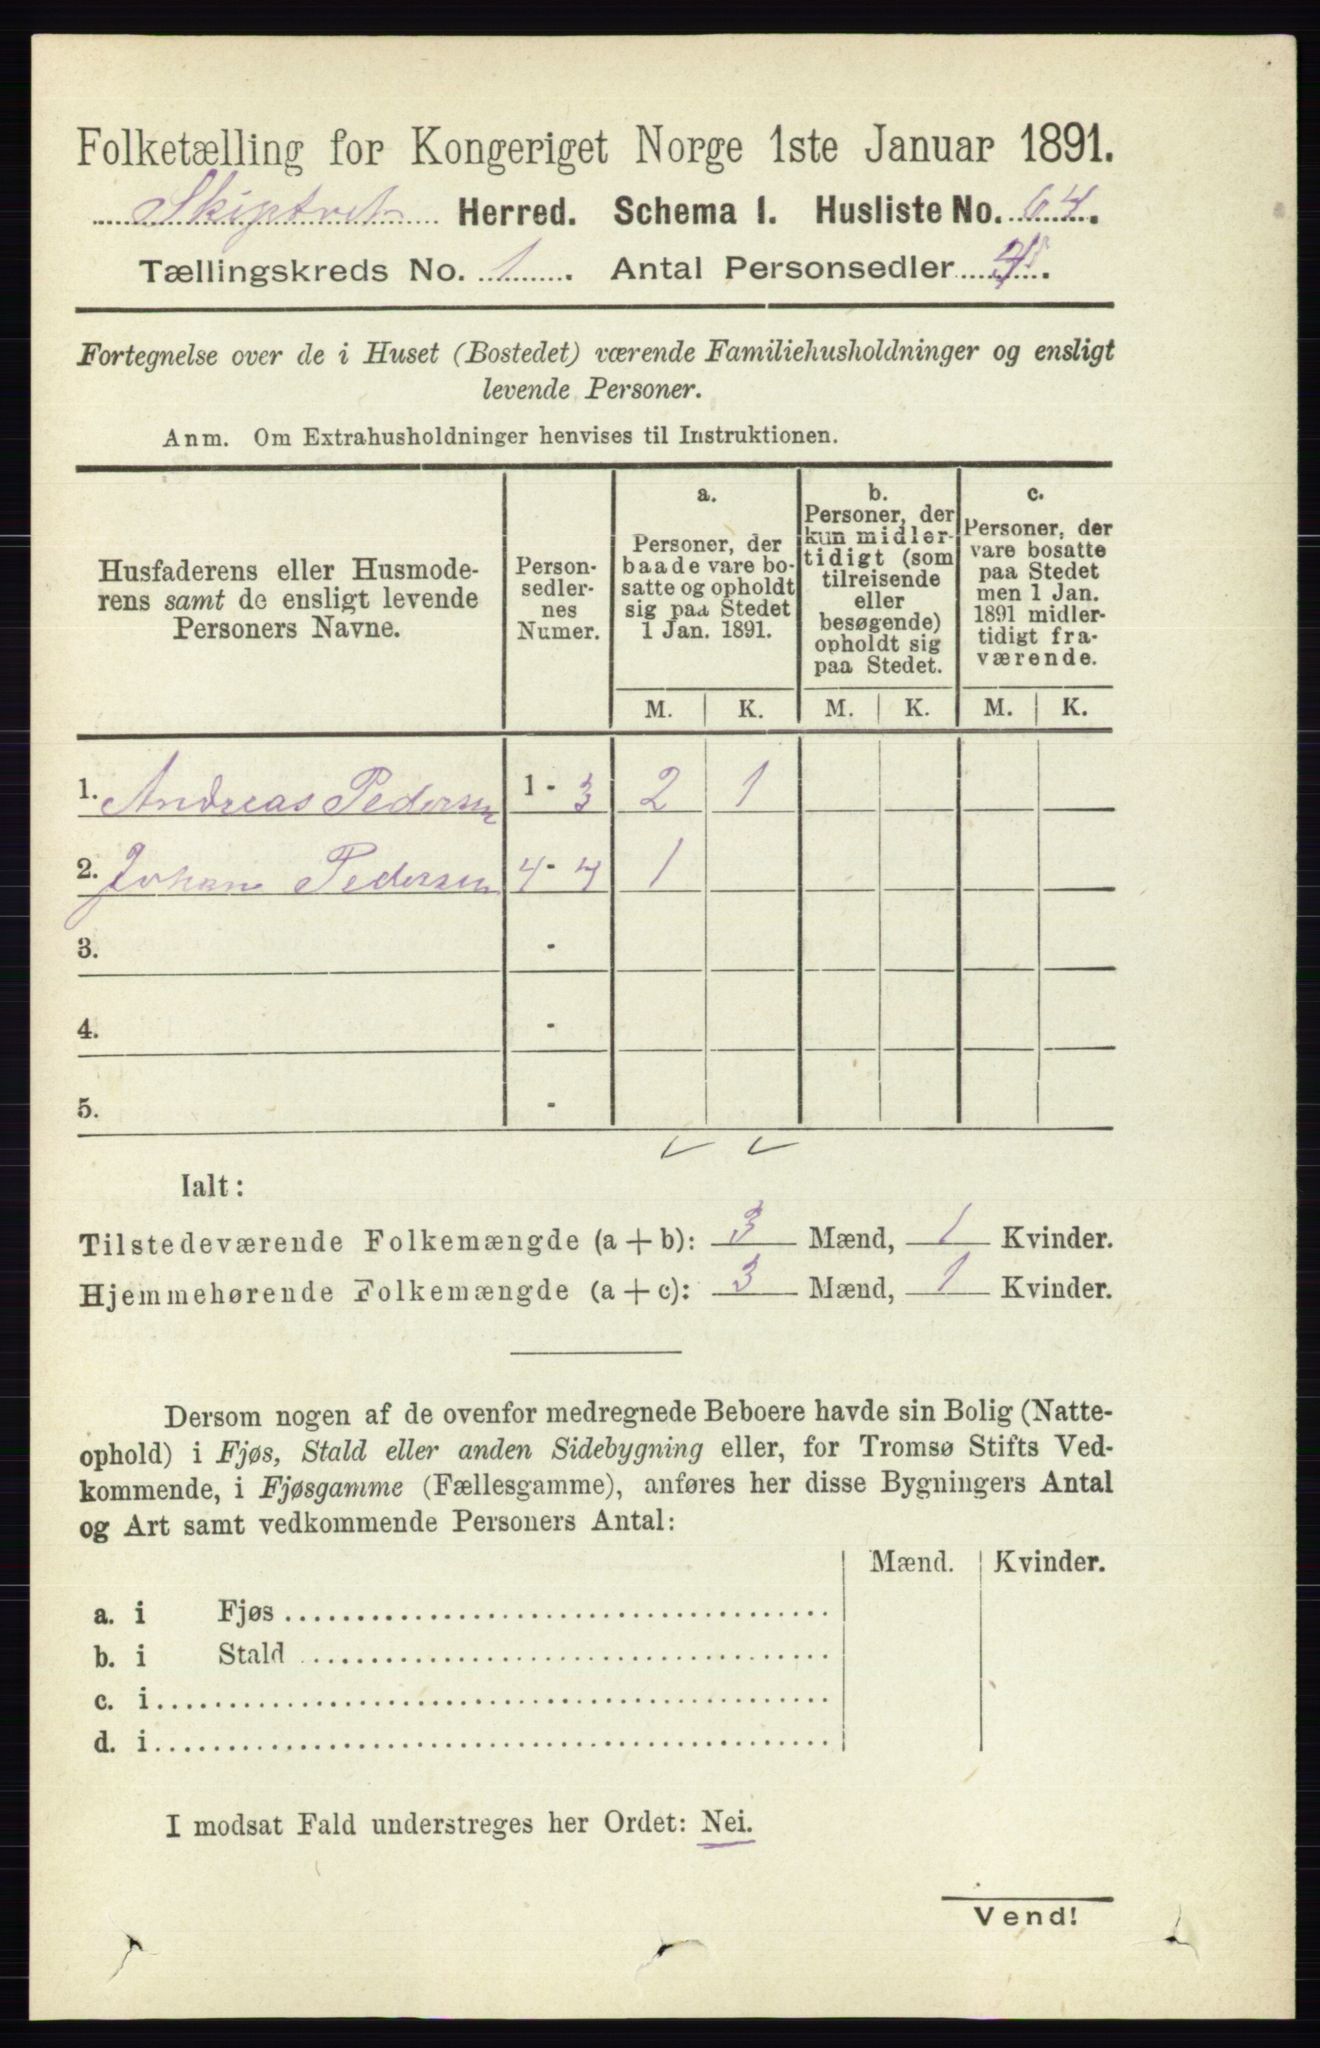 Folketælling for Kongeriget Norge 1ste Januar 1891.
Skiptvet Herred. Schema I. Husliste No. 64.
Tællingskreds No. 1. Antal Personsedler 4.
Fortegnelse over de i Huset (Bostedet) værende Familiehusholdninger og ensligt
levende Personer.
Anm. Om Extrahusholdninger henvises til Instruktionen.
Husfaderens eller Husmode-
rens samt de ensligt levende
Personers Navne.
Person-
sedler-
nes
Numer.
a.
Personer, der
baade vare bo-
satte og opholdt
sig paa Stedet
1 Jan. 1891.
b.
Personer, der
kun midler-
tidigt (som
tilreisende
eller
besøgende)
opholdt sig
paa Stedet.
c.
Personer, der
vare bosatte
paa Stedet
men 1 Jan.
1891 midler-
tidigt fra-
værende.
M. K. M. K. M. K.
1. Andreas Pedersen 1 - 3 2 1
2. Johan Pedersen 4 - 4 1
3. -
4. -
5. -
Ialt:
Tilstedeværende Folkemængde (a + b): 3 Mænd, 1 Kvinder.
Hjemmehørende Folkemængde (a + c): 3 Mænd, 1 Kvinder.
Dersom nogen af de ovenfor medregnede Beboere havde sin Bolig (Natte-
ophold) i Fjøs, Stald eller anden Sidebygning eller, for Tromsø Stifts Ved-
kommende, i Fjøsgamme (Fællesgamme), anføres her disse Bygningers Antal
og Art samt vedkommende Personers Antal:
Mænd. Kvinder.
a. i Fjøs
b. i Stald
c. i
d. i
I modsat Fald understreges her Ordet: Nei.
Vend!